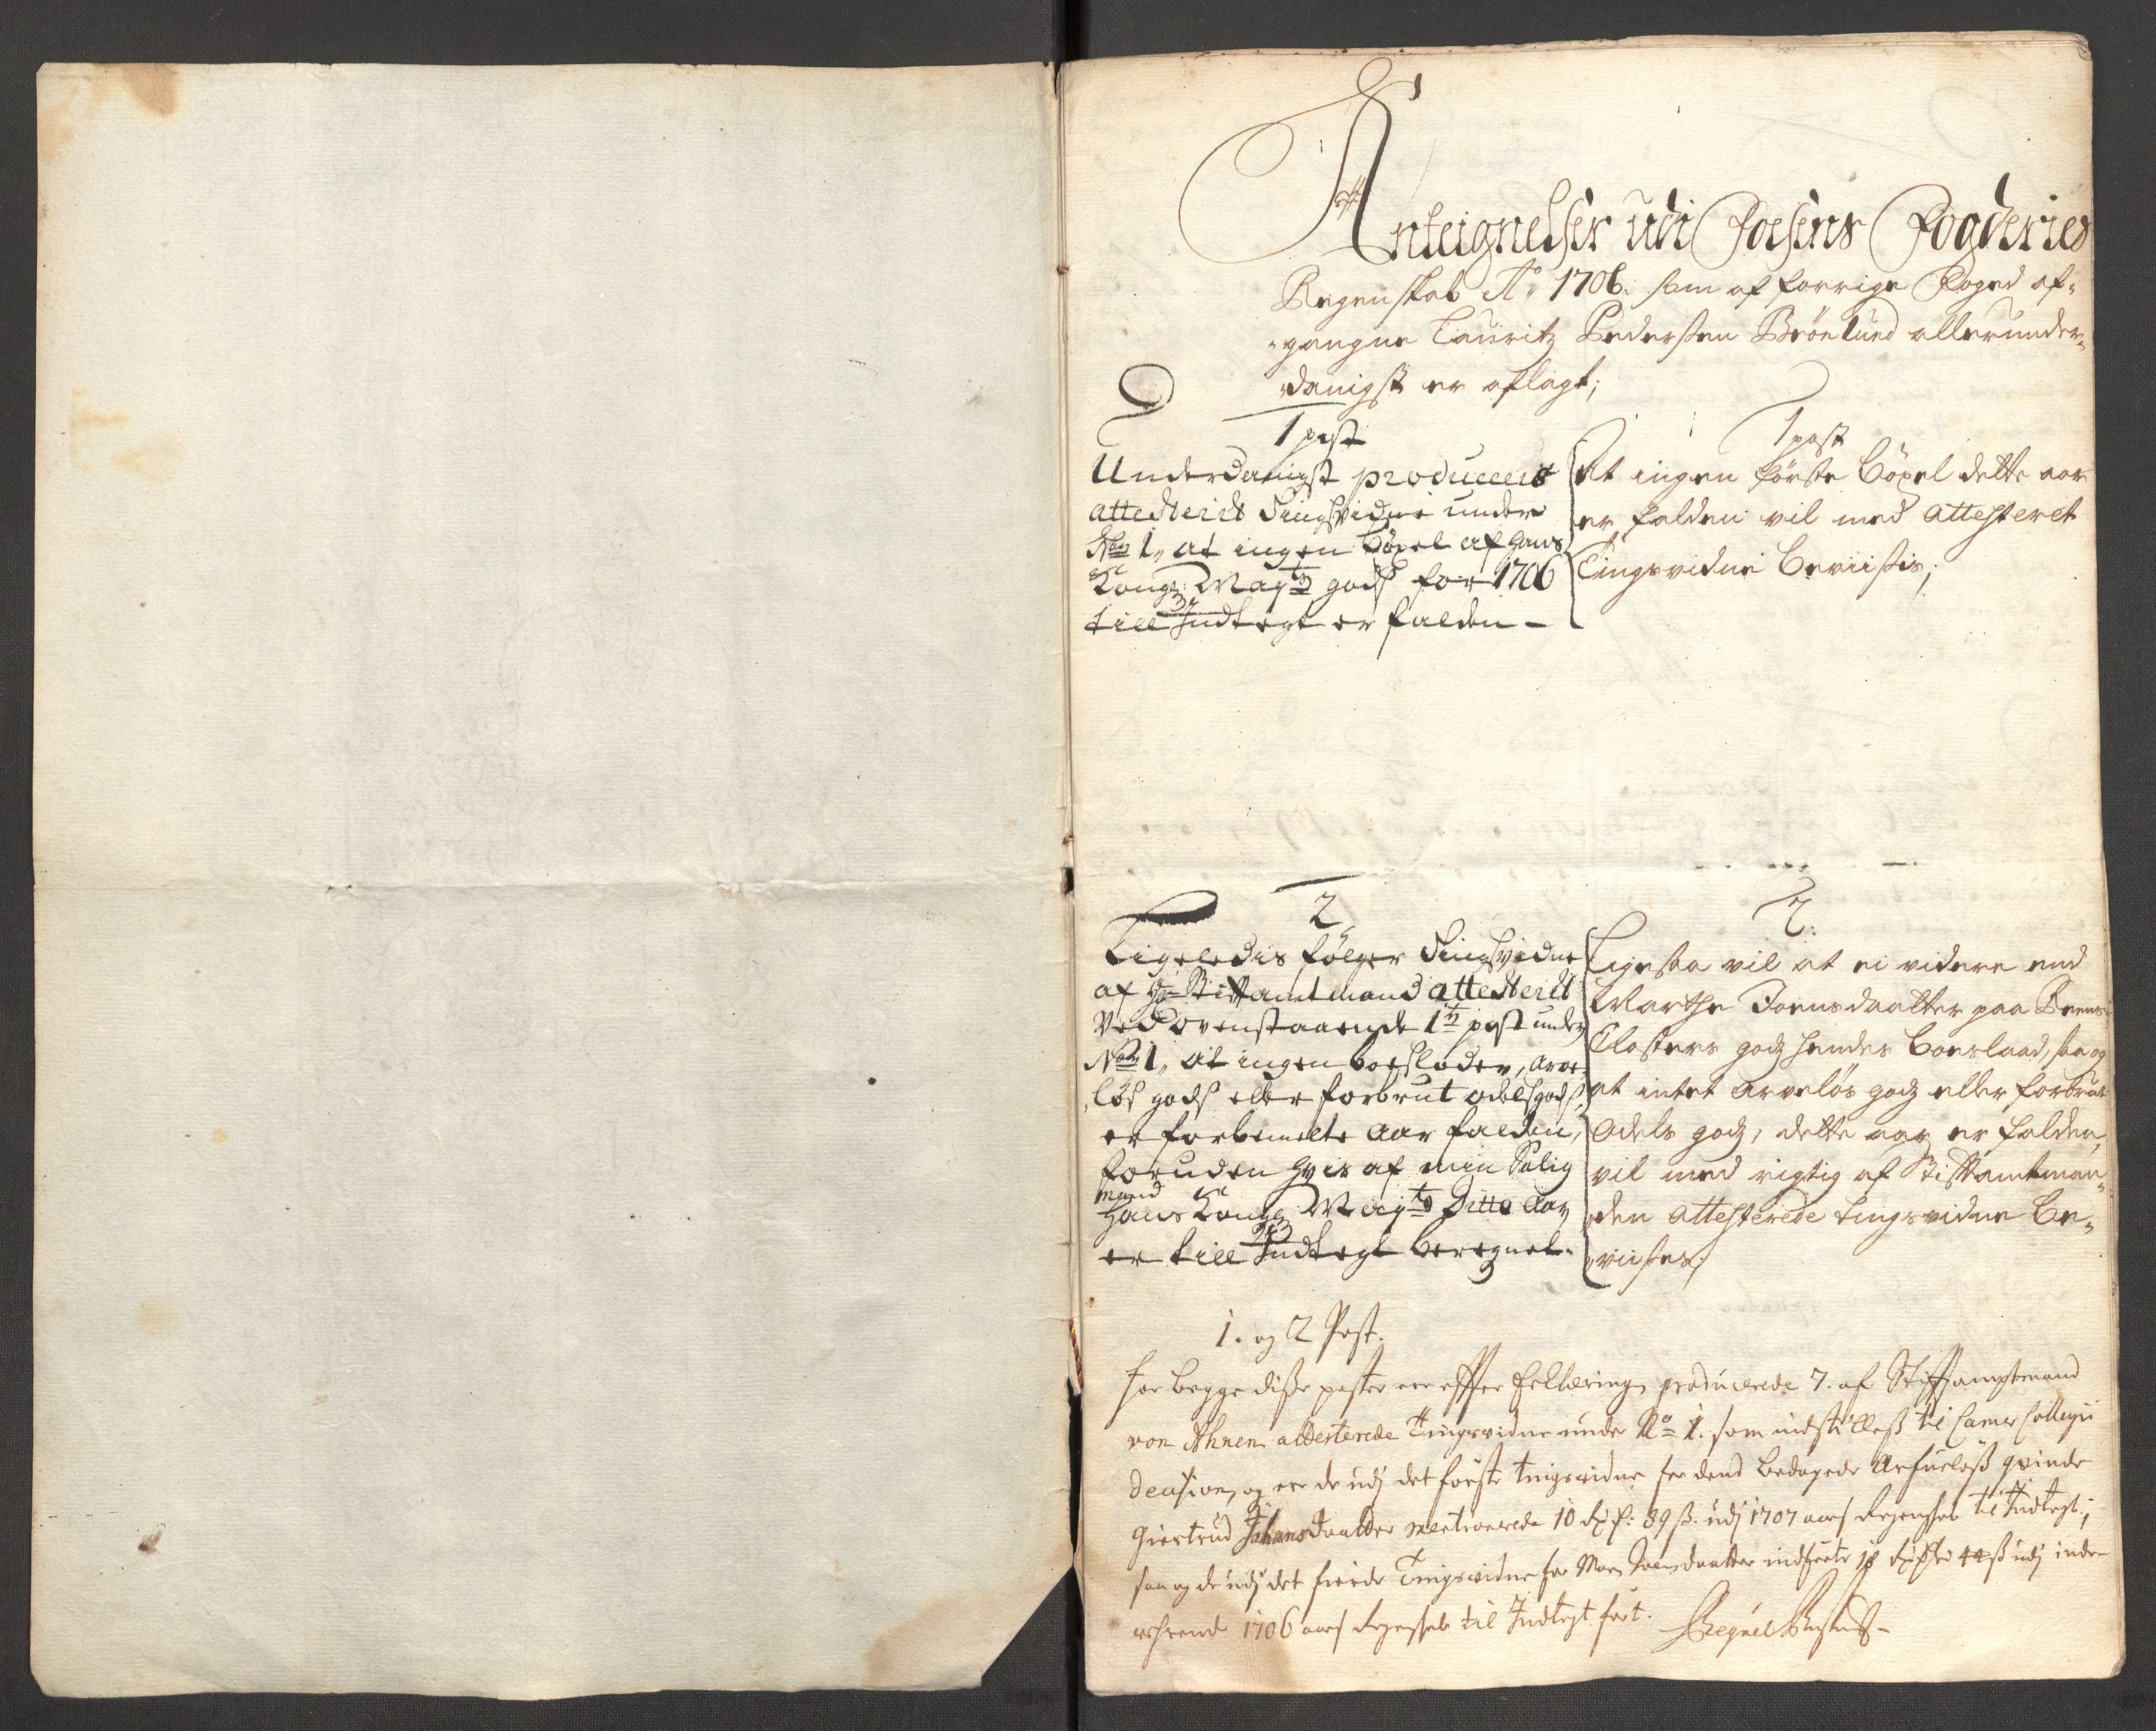 Anteignelser udi Fosens Fogderies
Regenskab Ao 1706. som af forrige Foged af-
gangne Lauritz Pedersen Brönlund allerunder-
danigst er aflagt;
1 post
Underdanigst producceris
attesterit Tingsvidne under
No 1, at ingen böxel af hans
Kongl: Maytz gods for 1706
till Indtegt er falden -
1 post
At ingen förste Böxel dette aar
er falden vil med attesteret
Tingsvidne beviisis;
2
Ligeledis følger Tingsvidne
af Hr Stiftamtmand attesterit
ved ovenstaaende 1te post under
No 1, at ingen boesloder, arve-
löß gods eller forbrut odelsgods,
er forbemelte aar falden,
foruden hvis af min Salig
mand
Hans Kongl Mayts Ditto aar
er till Indtegt beregnet.
2.
Ligesaa vil at ei videre end
Marthe Joensdaatter paa Reens
Closters godz hendes boeslaad, saa og
at intet arvelös godz eller forbrut
odels godz, dette aar er falden,
vil med rigtig af Stiftamtman-
den attesterede tingsvidne be-
viises;
1. og 2 Post.
For begge disse poster ere efter producerede 7. af Stiftamptmand
von Ahnen attesterede Tingsvidne under No 1. som indstilless til Camer Collegii
Decision, og ere de udj det förste tingsvidne for dend bedagede Arfuelöß qvinde
Giertrud Johansdaatter mentionerede 10 89 ß. udj 1707 aars Regenskab til Indtegt,
saa og de udj det fierde Tingsvidne for Mar Joensdaatter indförte 18 44 ß udj inde-
1706 aars Regenskab til Indtegt fört.